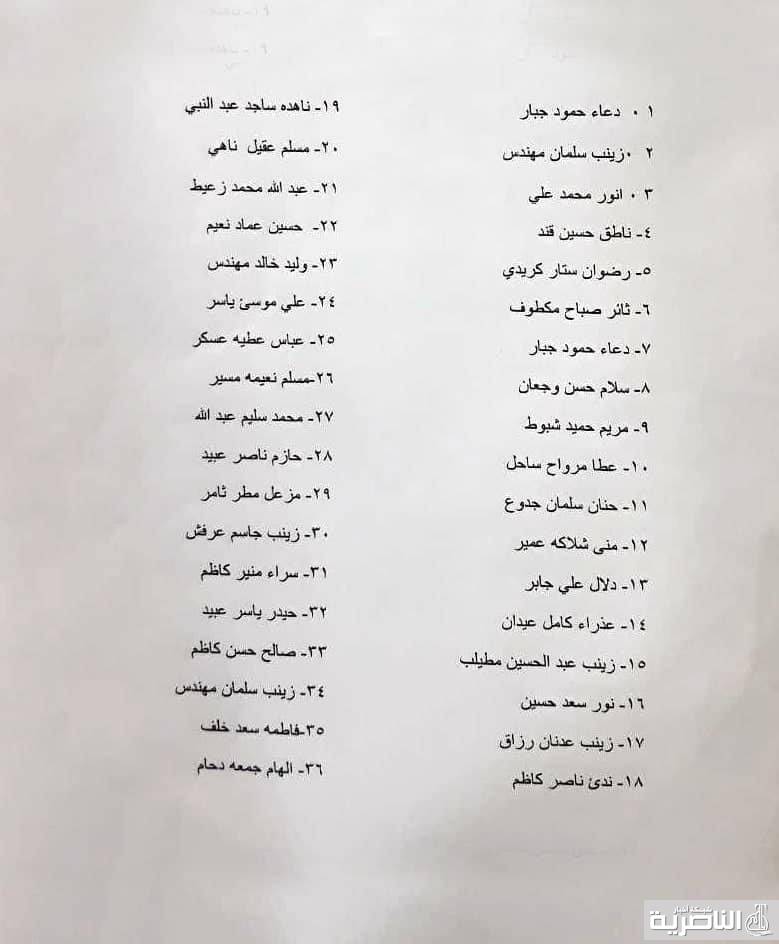 ١ ٠ دعاء حمود جبار
٢ ٠زينب سلمان مهندس
٣ ٠ انور محمد علي
٤- ناطق حسين قند
٥- رضوان ستار كريدي
٦- ثائر صباح مكطوف
٧- دعاء حمود جبار
٨- سلام حسن وجعان
٩- مريم حميد شبوط
١٠- عطا مرواح ساحل
١١- حنان سلمان جدوع
١٢- منى شلاكه عمير
١٣- دلال علي جابر
١٤- عذراء كامل عيدان
١٥- زينب عبد الحسين مطيلب
١٦- نور سعد حسين
١٧- زينب عدنان رزاق
١٨- ندئ ناصر كاظم
١٩- ناهده ساجد عبد النبي
٢٠- مسلم عقيل ناهي
٢١- عبد الله محمد زعيط
٢٢- حسين عماد نعيم
٢٣- وليد خالد مهندس
٢٤- علي موسئ ياسر
٢٥- عباس عطيه عسكر
٢٦-مسلم نعيمه مسير
٢٧- محمد سليم عبد الله
٢٨- حازم ناصر عبيد
٢٩- مزعل مطر ثامر
٣٠- زينب جاسم عرفش
٣١- سراء منير كاظم
٣٢- حيدر ياسر عبيد
٣٣- صالح حسن كاظم
٣٤- زينب سلمان مهندس
٣٥-فاطمه سعد خلف
٣٦- الهام جمعه دحام
شبكة أخبار
الناصرية